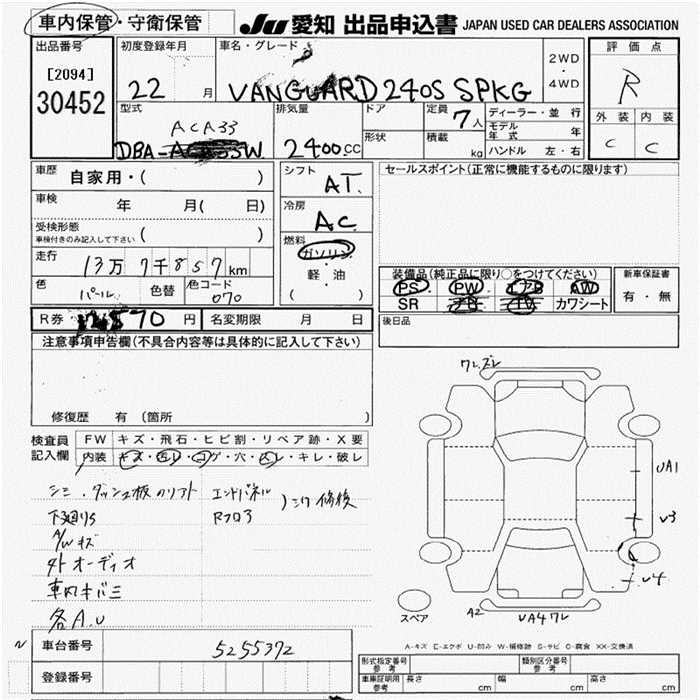 車内保管・守衛保管
JU 愛知 出品申込書 JAPAN USED CAR DEALERS ASSOCIATION
出品番号
[2094]
30452
初度登録年月
22 月
車名・グレード
VANGUARD 240S SPKG
2WD
・
4WD
評価点
R
外装 内装
C C
型式
ACA33
DBA-
W
排気量
2400cc
ドア
形状
定員
7人
積載
kg
ディーラー・並行
モデル年式 年
ハンドル 左・右
車歴 自家用・( )
車検 年 月( 日)
受検形態
車検付きのみ記入して下さい ( )
走行 13万7千857km
色 パール 色替 色コード 070
シフト
AT.
冷房
AC
燃料
ガソリン
軽・油
( )
セールスポイント(正常に機能するものに限ります)
装備品(純正品に限り○をつけてください)
PS PW エアB AW
SR カワシート
新車保証書
有・無
R券 570円 名変期限 月 日
後日品
注意事項申告欄(不具合内容等は具体的に記入して下さい)
修復歴 有 (箇所
検査員
記入欄
FW キズ・飛石・ヒビ割・リペア跡・X要
内装 キズ・汚レ・コゲ・穴・スレ・キレ・破レ
シミ・ダッシュ板のリフト
下廻りS
A/Wキズ
外オーディオ
車内キバミ
各A.U
エンドパネル
Rフロア
修復
ワレ.ズレ
UA1
U3
U4
A2
UA4ワレ
スペア
A-キズ E-エクボ U-凹み W-補修跡 S-サビ C-腐食 XX-交換済
車台番号 5255372
登録番号
型式指定番号
参考
類別区分番号
参考
車庫証明用
参考
長さ cm 幅 cm 高さ cm